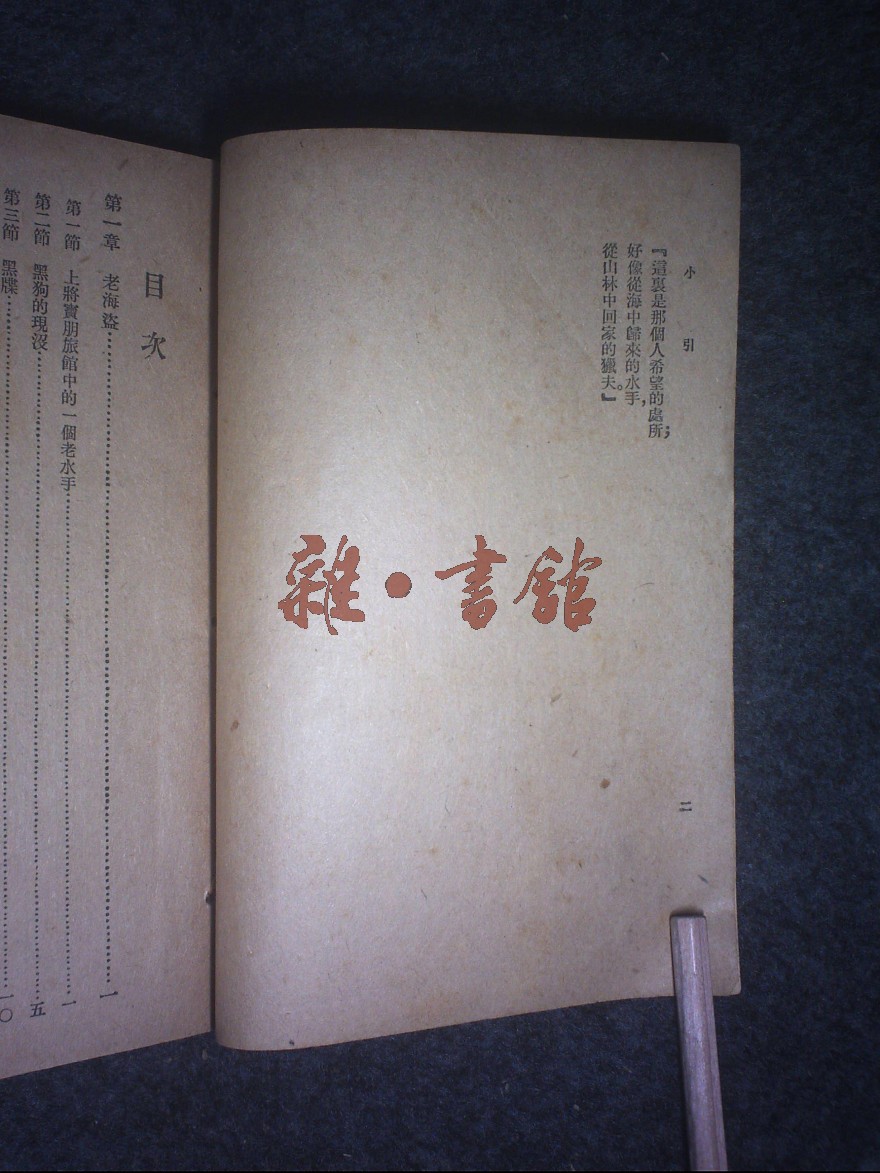 小引
二
『這裏是那個人希望的處所；
好像從海中歸來的水手，
從山林中回家的獵夫。』
雜·書館
目次
第一章 老海盜……一
第一節 上將賓朋旅館中的一個老水手……一
第二節 黑狗的現沒……五
第三節 黑牒……一〇